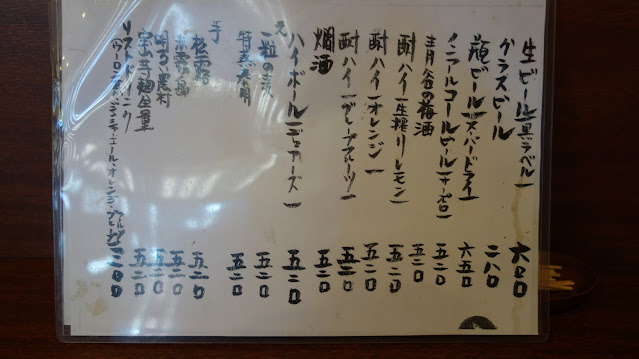 生ビール(黒ラベル) 六〇〇
グラスビール 二八〇
瓶ビール(スーパードライ) 六五〇
ノンアルコールビール(サッポロ) 五二〇
青谷の梅酒 五二〇
酎ハイ(生搾りレモン) 五二〇
酎ハイ(オレンジ) 五二〇
酎ハイ(グレープフルーツ) 五二〇
燗酒 五二〇
ハイボール(デュアーズ) 五二〇
一粒の麦 五二〇
特蒸泰明 五二〇
芋
松露 五二〇
新霧島 五二〇
明るい農村 五二〇
宝山芋麹全量 五二〇
ソフトドリンク
(ウーロン・ジンジャーエール・オレンジ・グレープフルーツ) 二〇〇